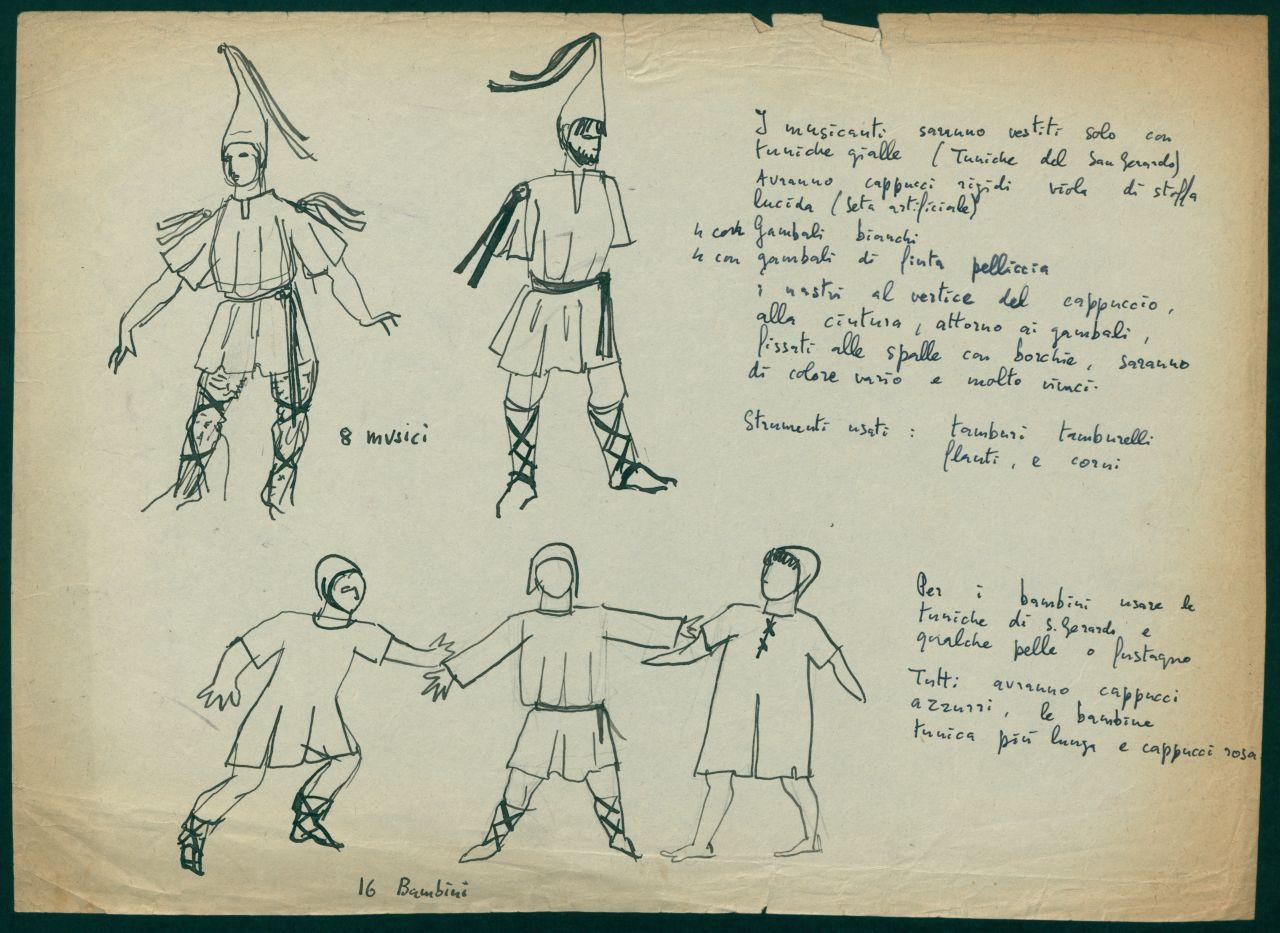 I musicanti saranno vestiti solo con
tuniche gialle (Tuniche del San Gerardo)
Avranno cappucci rigidi viola di stoffa
lucida (seta artificiale)
4 con Gambali bianchi
4 con gambali di finta pelliccia
i nastri al vertice del cappuccio,
alla cintura, attorno ai gambali,
fissati alle spalle con borchie, saranno
di colore vario e molto vivaci.
8 musici
Strumenti usati : tamburi tamburelli
flauti, e corni
Per i bambini usare le
tuniche di S. Gerardo e
qualche pelle o fustagno
Tutti avranno cappucci
azzurri, le bambine
tunica più lunga e cappucci rosa
16 Bambini